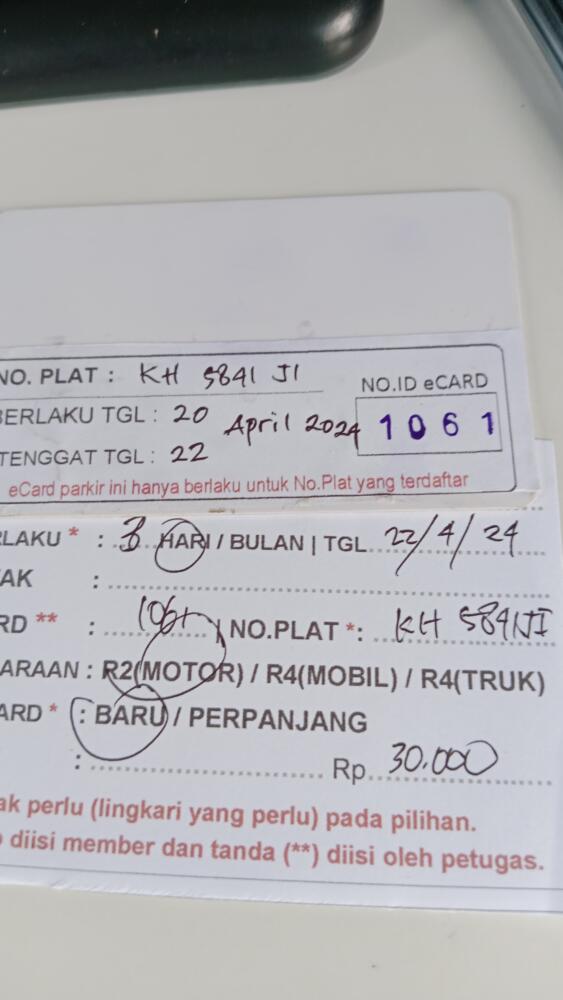 NO. PLAT : KH 5841 JI
NO.ID eCARD
BERLAKU TGL : 20 April 2024
1061
TENGGAT TGL : 22
eCard parkir ini hanya berlaku untuk No.Plat yang terdaftar
LAKU * : 3 HARI / BULAN | TGL 22/4/24
AK :
RD ** : 1061 | NO.PLAT *: KH 5841 JI
ARAAN : R2(MOTOR) / R4(MOBIL) / R4(TRUK)
ARD * : BARU / PERPANJANG
: Rp 30.000
ak perlu (lingkari yang perlu) pada pilihan.
diisi member dan tanda (**) diisi oleh petugas.